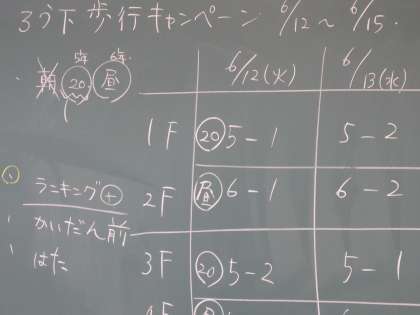 ろう下歩行キャンペーン 6/12〜6/15.
5年 6年
朝 ⑳ 昼
6/12(火) 6/13(水)
1F ⑳ 5-1 5-2
ランキング
2F 昼 6-1 6-2
かいだん前
はた
3F ⑳ 5-2 5-1